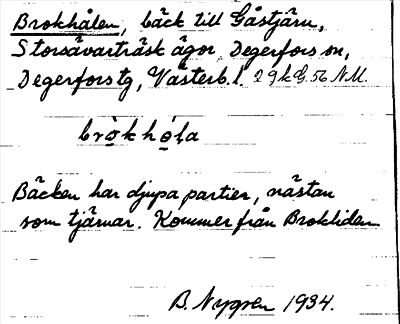 Brokhålen, bäck till Gåstjärn,
Storsävarträsk ägor, Degerfors sn,
Degerfors tg, Västerb. l. 29 k G. 56 N.M.
bròkhǫla
Bäcken har djupa partier, nästan
som tjärnar. Kommer från Brokliden
B. Nygren 1934.